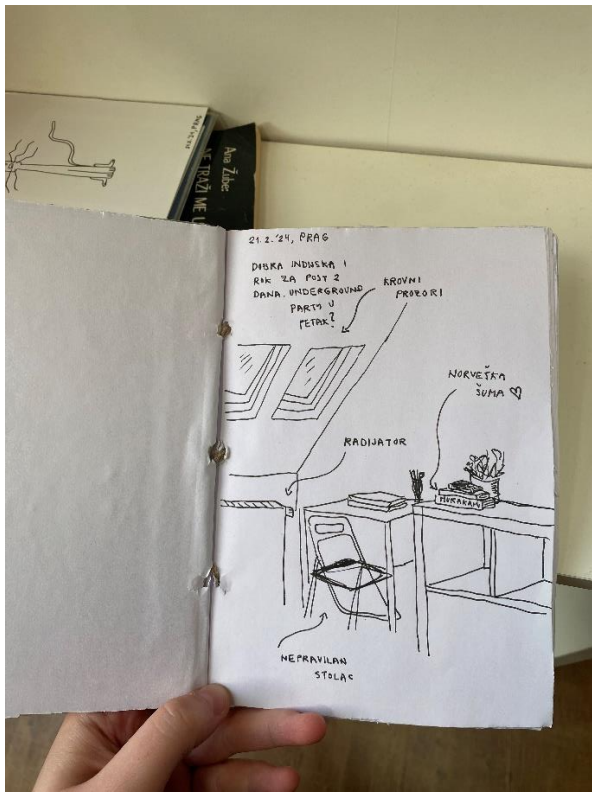 Ana Žube:
NE TRAŽI ME U
21.2.'24, PRAG
DOBRA INDIJSKA I
ROK ZA POST 2
DANA. UNDERGROUND
PARTY U
PETAK?
KROVNI
PROZORI
NORVEŠKA
ŠUMA ♡
RADIJATOR
MURAKAMI
NEPRAVILAN
STOLAC